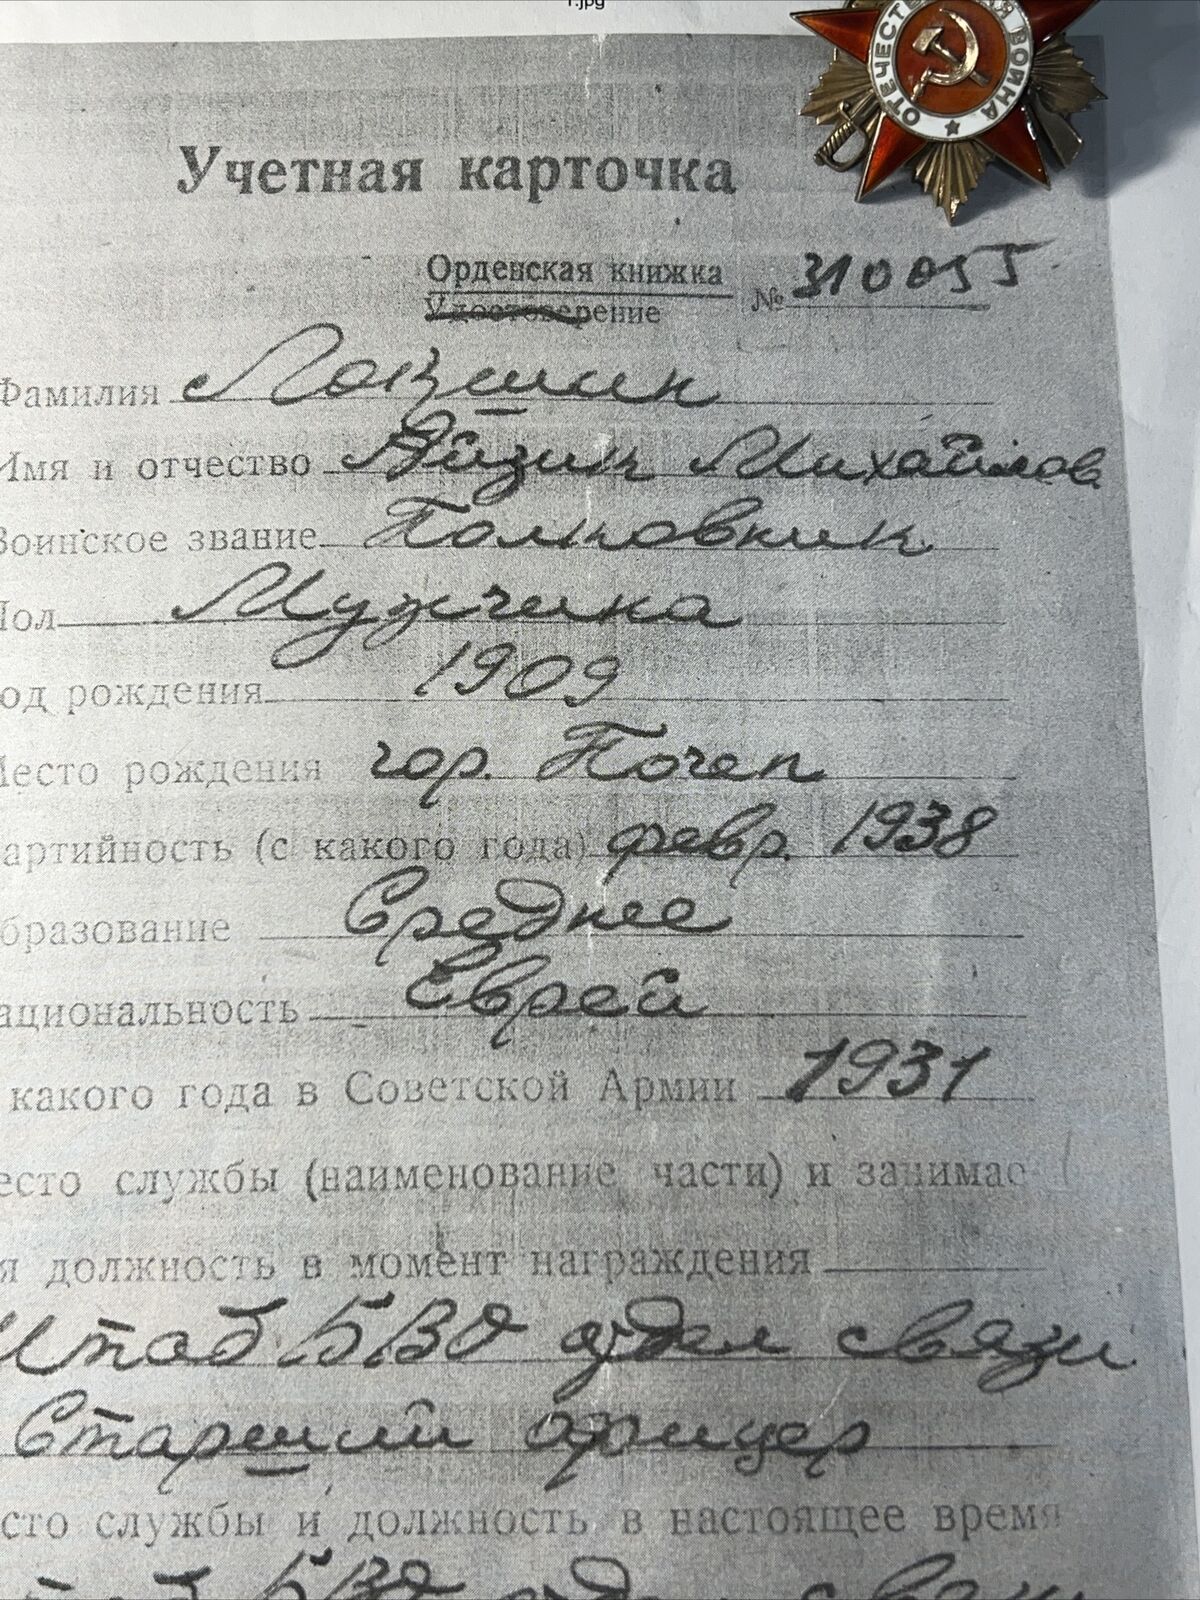 1.jpg
ОТЕЧЕСТВЕННАЯ ВОЙНА
Учетная карточка
Орденская книжка
Удостоверение
№ 310055
Фамилия Локшин
Имя и отчество Айзик Михайлов
Воинское звание Полковник
Пол Мужчина
од рождения 1909
Место рождения гор. Почеп
артийность (с какого года) февр. 1938
бразование Среднее
ациональность Еврей
какого года в Советской Армии 1931
есто службы (наименование части) и занимае
я должность в момент награждения
Штаб БВО отдел связи
Старший офицер
сто службы и должность в настоящее время
Штаб БВО отдел связи